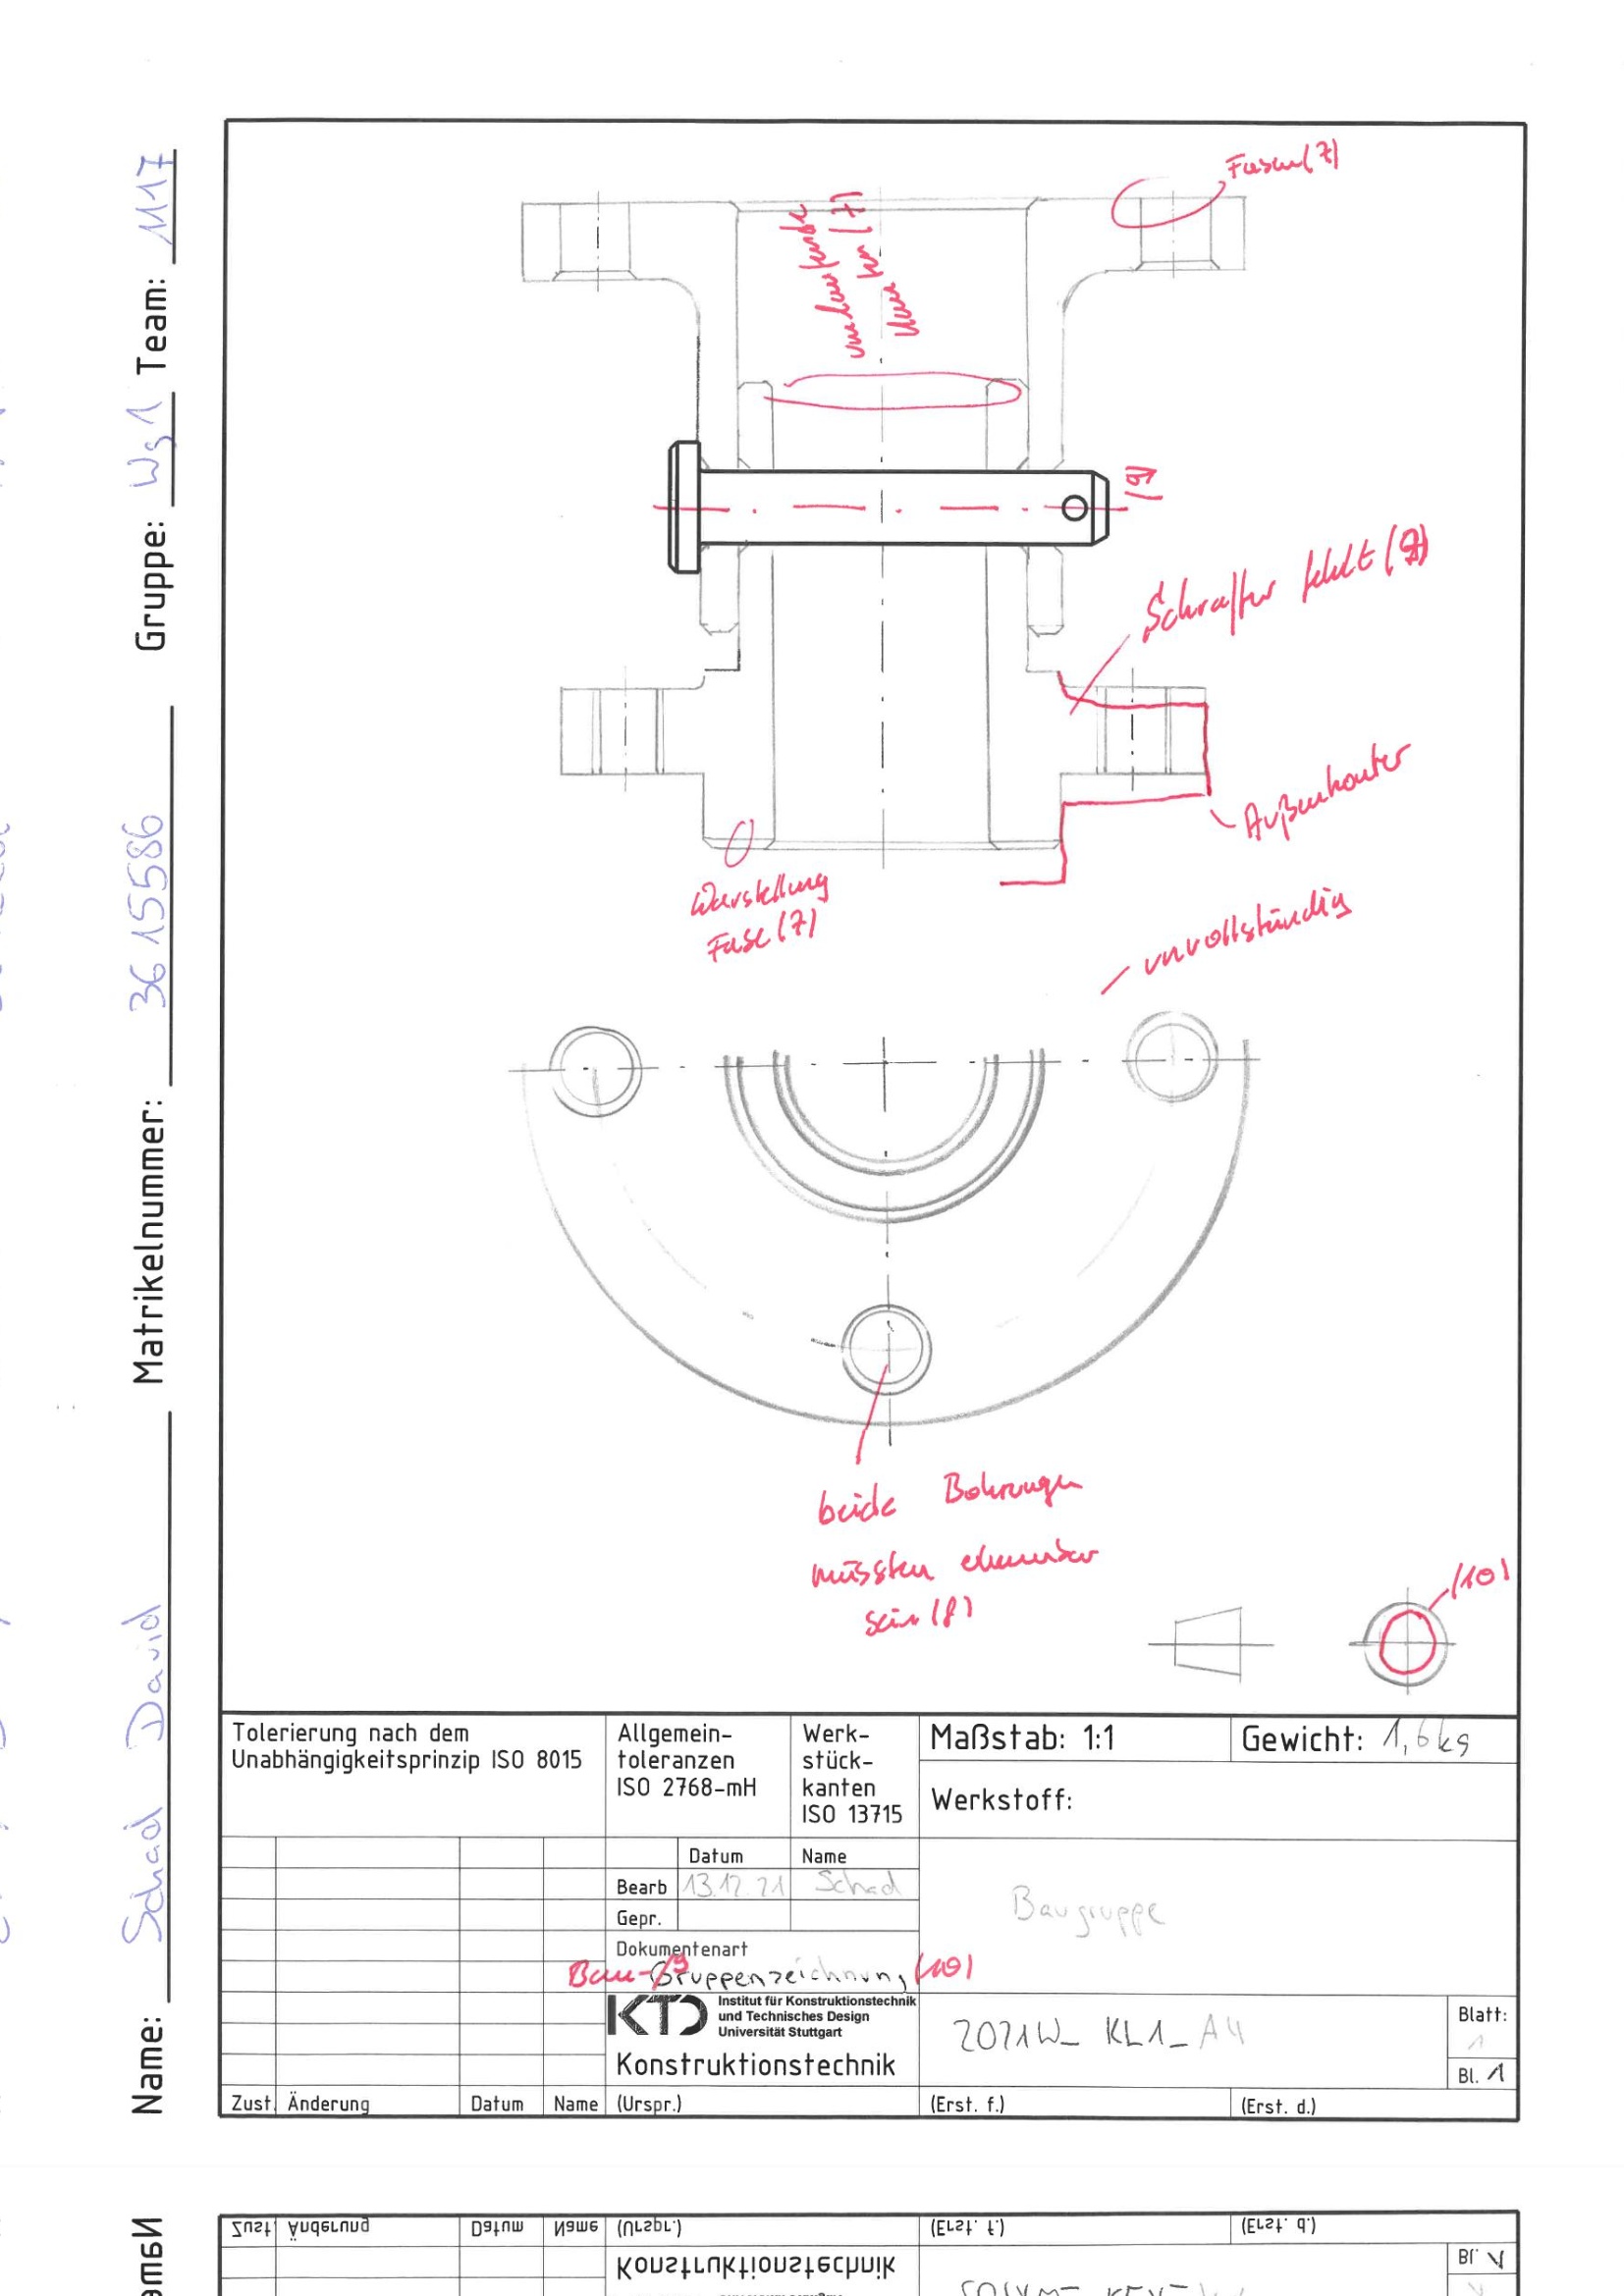 Name: Schad David Matrikelnummer: 3615586 Gruppe: Wg1 Team: 1117
Fasen (7)
umlaufende
(7)
(9)
Schraffur fehlt (7)
Außenkontur
Darstellung
Fase (7)
unvollständig
beide Bohrungen
müssten erkennbar
sein (8)
(10)
Tolerierung nach dem
Unabhängigkeitsprinzip ISO 8015
Allgemein-
toleranzen
ISO 2768-mH
Werk-
stück-
kanten
ISO 13715
Maßstab: 1:1
Gewicht: 1,6kg
Werkstoff:
Datum Name
Bearb 13.12.21 Schad
Gepr.
Baugruppe
Dokumentenart
Bau-/g Gruppenzeichnung (10)
KTD
Institut für Konstruktionstechnik
und Technisches Design
Universität Stuttgart
Konstruktionstechnik
2021W_KL1_A4
Blatt:
1
Bl. 1
Zust. Änderung Datum Name (Urspr.) (Erst. f.) (Erst. d.)
Zust. Änderung Datum Name (Urspr.) (Erst. f.) (Erst. d.)
Konstruktionstechnik
Bl. 1